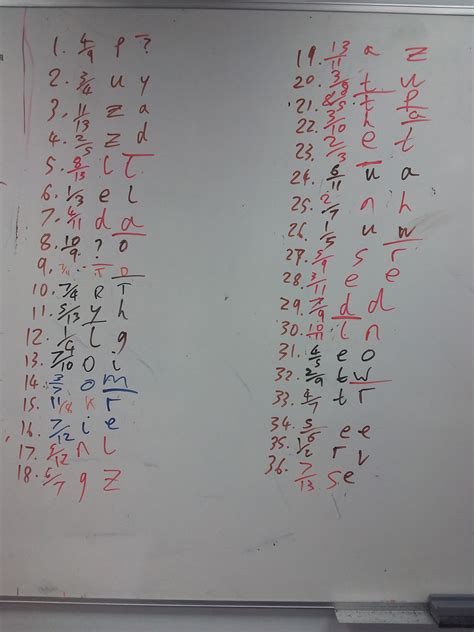 1. 4/9 p ?
2. 3/4 u y
3. 11/13 z a
4. 2/5 z d
5. 8/13 l T
6. 1/3 e l
7. 4/11 d a
8. 10/9 ? o
10. 7/4
11. 5/13 y h
12. 1/4 l g
13. 7/10 o i
14. o m
15. 11/8 K r
16. 7/12 i e
17. 5/12 n l
18. 6/7 g z
19. 13/11 a z
20. t u
21. t p
22. 3/10 h a
23. 2/3 e t
24. 8/11 u a
25. 2/7 n h
26. 1/5 u w
27. s r
28. 3/11 e e
29. 7/9 d d
30. 10/11 l n
31. 4/5 e o
32. 2/9 t w
33. 4/7 t r
34. e e
35. 1/2 r v
36. 7/13 s e